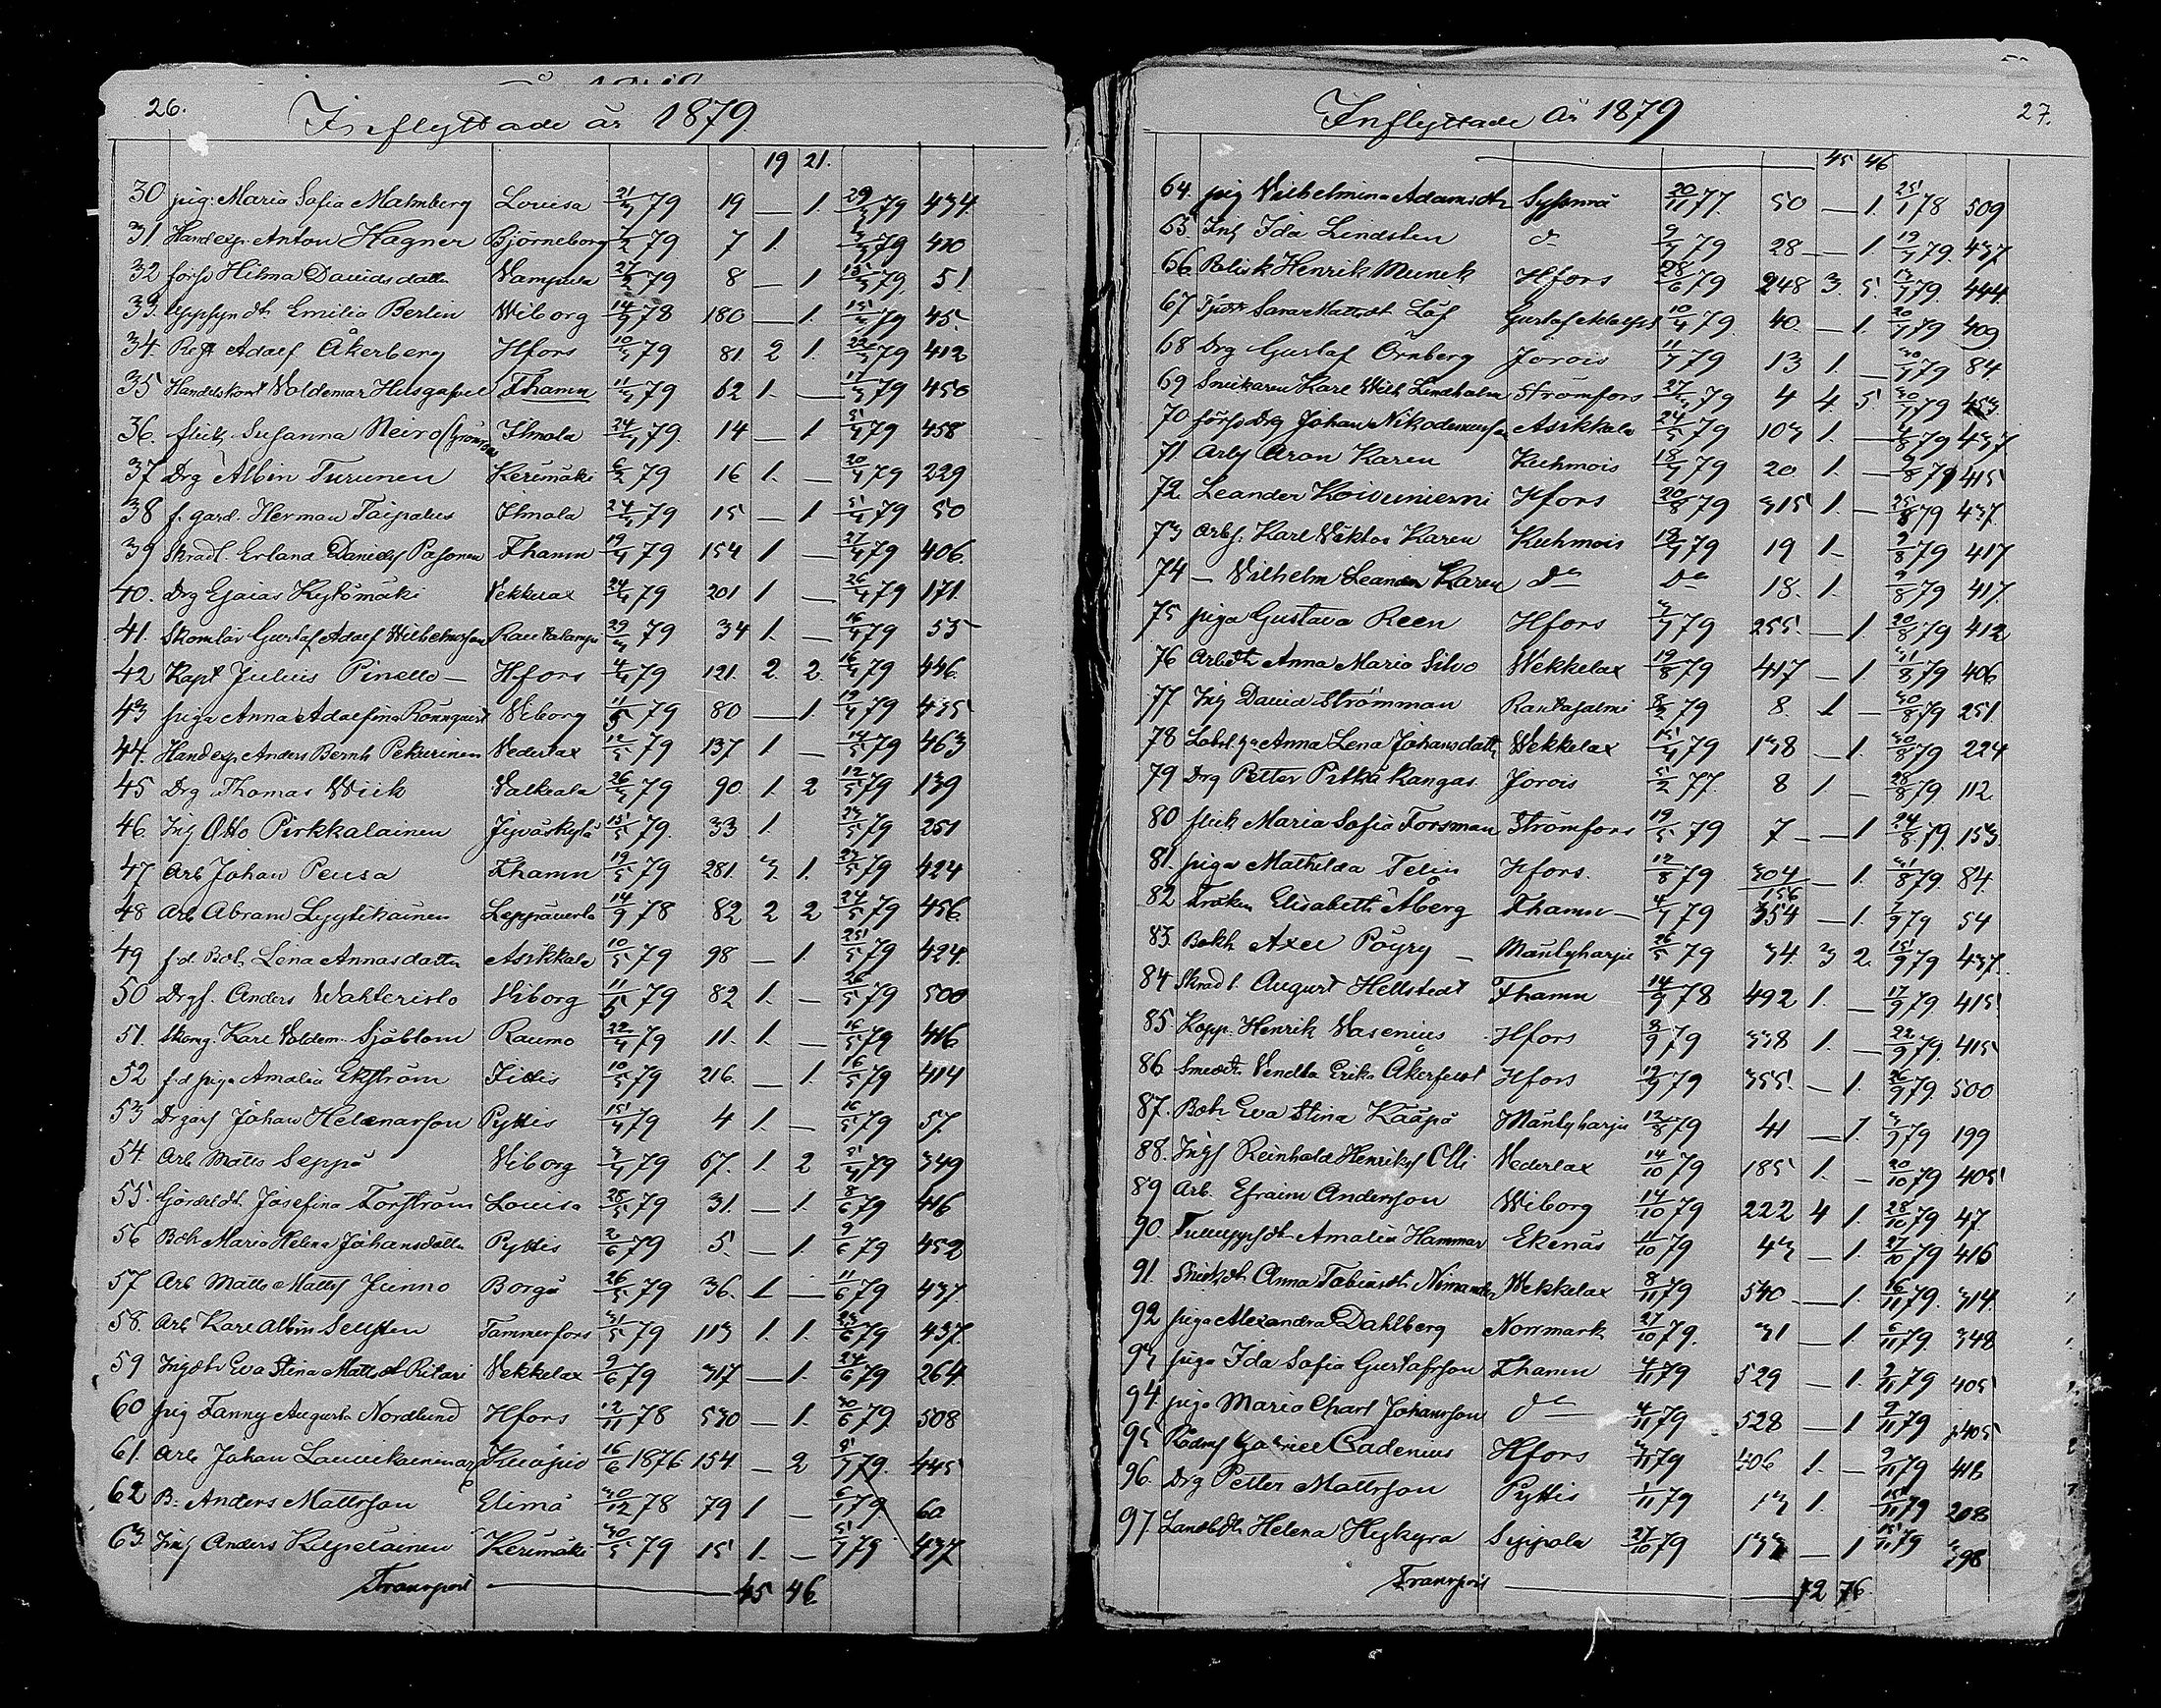 26.
Inflyttade år 1879.
19 21.
30 pig. Maria Sofia Malmberg Lovisa 21/3 79 19 — 1. 29/3 79 434.
31 Handexp. Anton Hagner Björneborg 7/2 79. 7 1. 79 410
32 Hilma Davidsdotter Vampula 27/2 79 8 — 1 79. 51.
33. Emilia Berlin Wiborg 14/9 78 180 — 1. 79 45.
34. Adolf Åkerberg Hfors 10/3 79 81. 2 1. 79 412
35 Voldemar Husgafvel Fhamn 11/4 79 62 1. — 17/4 79 450
36. flick. Susanna Neiro Ilmola 24/4 79. 14 — 1 79 458
37 Drg Albin Turunen Kerimäki 6/2 79 16 1. — 20/4 79 229
38 f. gard. Herman Taipalus Ilmola 24/4 79 15 — 1 79 50
39 Skradl. Erland Daniels Pasonen Fhamn 19/4 79 154 1 — 27/4 79 406.
40. Drg Esaias Kylömäki Vekkelax 24/4 79 201 1 — 26/4 79 171.
41. Gustaf Adolf Wilhelmsson Rautalampi 29/3 79 34 1. — 16/4 79 55
42 Kapt Julius Pinello — Hfors 4/4 79 121. 2. 2. 16/4 79 446.
43 piga Anna Adolfina Rönnqvist Viborg 11/5 79 80 — 1. 19/4 79 435
44. Handexp. Anders Bernh Pekurinen Vederlax 12/5 79 137 1 — 14/5 79 463
45 Drg Thomas Wiik Valkeala 26/3 79 90. 1. 2 12/5 79 139
46. Ing Otto Pirkkalainen Jyväskylä 15/5 79. 33 1. 23/5 79 251
47 Arb Johan Peusa Fhamn 19/5 79 281. 3. 1. 23/5 79 424
48 Arb Abram Lyytikäinen Leppävirta 14/9 78 82 2 2 24/5 79 456
49 f.d. Bol. Lena Annasdotter Asikkala 10/5 79 98 — 1. 25/5 79 424.
50 Drgs. Anders Wahteristo Viborg 11/5 79 82 1. — 26/5 79 500
51. Karl Voldem. Sjöblom Raumo 22/4 79 11. 1. — 16/5 79 416
52 f.d piga Amalia Ekström Iittis 10/5 79 216. — 1. 16/5 79 414
53 Johan Helenarson Pyttis 15/4 79 4 1. — 16/5 79 57
54. Arb Matts Seppä Viborg 3/4 79 67. 1. 2 79 349
55. Josefina Forsström Lovisa 28/5 79 31. — 1. 8/6 79 416
56 Maria Helena Johansdotter Pyttis 2/6 79 5. — 1. 9/6 79 452
57 Arb Matts Matts Junno Borgå 26/5 79 36. 1 — 11/6 79 437
58. Arb Karl Albin Sellsten Tammerfors 31/5 79 113 1. 1. 23/6 79 437.
59 Eva Stina Vekkelax 9/6 79 317 — 1. 24/6 79 264
60 pig Fanny Augusta Nordlund Hfors 12/11 78 530 — 1. 30/6 79. 508
61. Arb Johan Kuopio 16/6 1876 154 — 2 79. 445
62 B. Anders Mattsson Elimä 30/12 78 79 1 — 79. 60
63. Anders Kerimäki 30/5 79 15 1. — 79. 437
Transport — 45 46
Inflyttade år 1879
27.
45 46
64. pig Vilhelmina Adamsdtr 20/11 77. 50 — 1. 25/1 78 509
65 Ing Ida Lindsten do 9/7 79 28 — 1. 19/7 79. 437
66. Henrik Munck Hfors 28/6 79 248 3. 5. 79. 444
67 Löf Gustaf Adolfs 10/4 79. 40. — 1. 20/7 79 409
68 Drg Gustaf Örnberg Jorois 11/7 79 13 1. — 79 84
69 Snickaren Karl Wilh Lindholm Strömfors 27/4 79 4 4. 5. 30/7 79
70 Drg Johan Nikodemusson Asikkala 24/5 79 103 1. — 79 437
71 Arb Aron Karen Kuhmois 18/7 79 20. 1. — 9/8 79 415
72. Leander Koivuniemi Hfors 20/8 79 315 1. — 25/8 79 437.
73 Arbs. Karl Viktor Karen Kuhmois 18/7 79 19 1. — 9/8 79 417
74 — Vilhelm Leander Karen do do 18. 1. 9/8 79 417.
75 piga Gustava Reen Hfors 79 255. — 1. 20/8 79 412
76 Anna Maria Silvo Wekkelax 19/8 79 417 — 1 31/8 79 406
77 Ing David Strömman Rantasalmi 8/2 79 8. 1 — 30/8 79 251
78 Anna Lena Johansdotter Wekkelax 15/4 79 138 — 1. 30/8 79 224
79 Drg Petter Pitkäkangas Jorois 5/2 77. 8 1. — 28/8 79 112.
80 flick Maria Sofia Forsman Strömfors 19/5 79 7 — 1 24/8 79. 153.
81. piga Mathilda Felin Hfors. 12/8 79 304 — 1. 31/8 79. 84.
82 Fröken Elisabeth Åberg Fhamn — 4/7 79 354 156 — 1. 79 54
83. Bokh Axel Pöyry — Mäntyharju 26/5 79 34. 3 2. 15/9 79 437.
84 Skradl. August Hellstedt Fhamn 14/9 78 492 1. — 17/9 79. 415
85. Kopp. Henrik Vasenius Hfors 3/9 79 338 1. — 22/9 79. 415
86. Vendla Erika Hfors 79 355. — 1. 26/9 79. 500
87. Eva Stina Kääpä Mäntyharju 12/8 79 41 — 1. 79 199
88. Reinhold Henriks Olli Vederlax 14/10 79 185 1. — 20/10 79 405
89 Arb. Efraim Andersson Wiborg 14/10 79 222 4 1. 28/10 79 47.
90. Amalia Hammar Ekenäs 11/10 79 43 — 1. 27/10 79 416
91. Anna Wekkelax 8/11 79 540 — 1. 16/11 79. 314.
92 piga Alexandra Dahlberg Norrmark 27/10 79. 31 — 1. 6/11 79. 348
93 piga Ida Sofia Gustafsson Fhamn 4/11 79 529 — 1. 9/11 79 405
94. piga Maria Charl Johansson do 4/11 79 528 — 1 9/11 79 405
95 Gabriel Cadenius Hfors 79 406 1. — 9/11 79 416
96. Drg Petter Mattsson Pyttis 1/11 79 13 1. 15/11 79 208
97. Helena Hykyra Sippola 27/10 79 133 — 1 15/11 79 198
Transport — 72 76